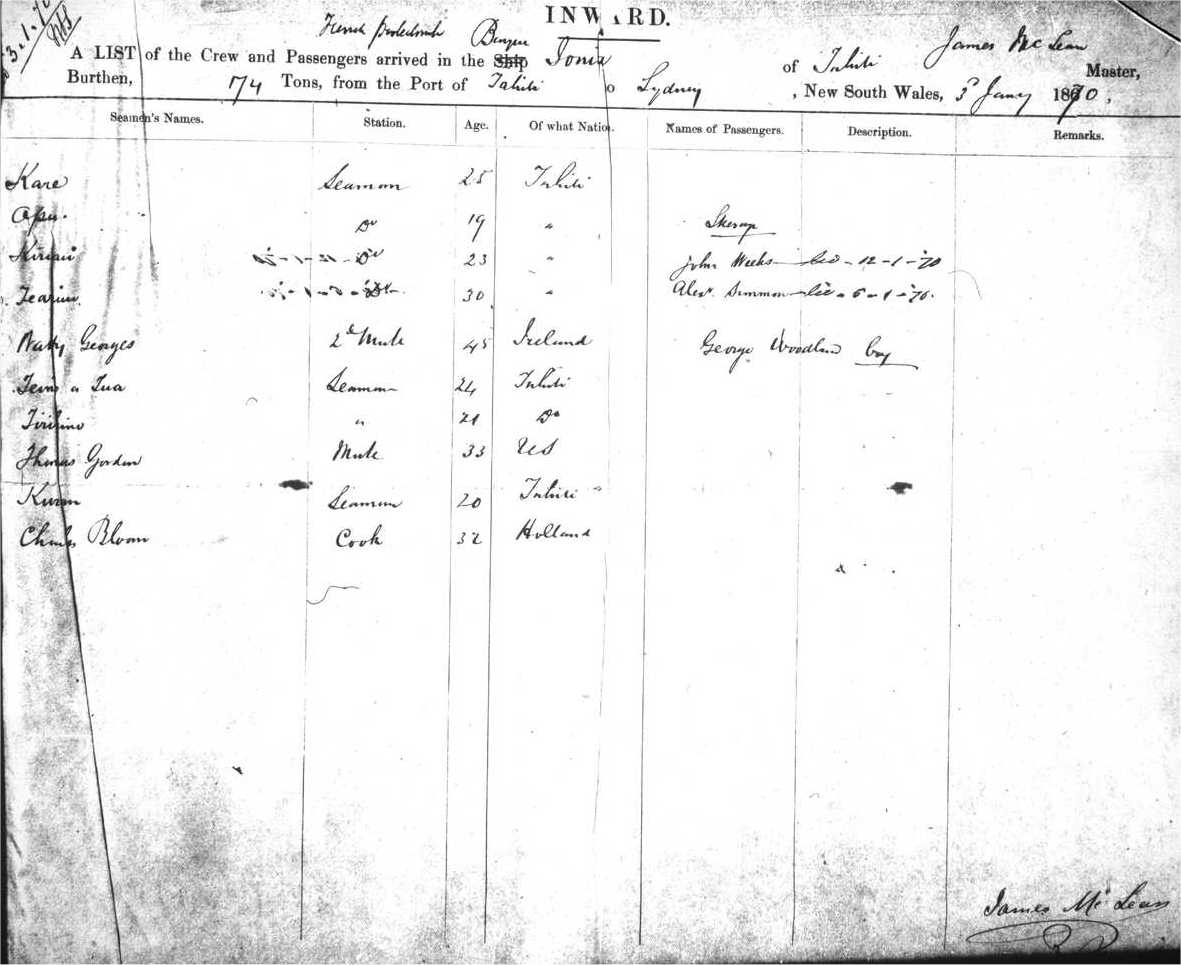 3.1.70
INWARD.
French Protectorate
A LIST of the Crew and Passengers arrived in the Ship Ionia of Tahiti James McLean Master,
Burthen, 174 Tons, from the Port of Tahiti to Sydney, New South Wales, 3d Jany 1870,
Seamen's Names. Station. Age. Of what Nation. Names of Passengers. Description. Remarks.
Kare Seaman 25 Tahiti
Apu. Do 19 " Steerage
23 " John Weeks 12-1-70
30 " Alexr
Georges 2d Mate 45 Ireland George Woodland boy
a Tua Seaman 24 Tahiti
" 21 Do
Thomas Gordon Mate 33 US
Seaman 20 Tahiti
Charles Bloom Cook 32 Holland
James McLean